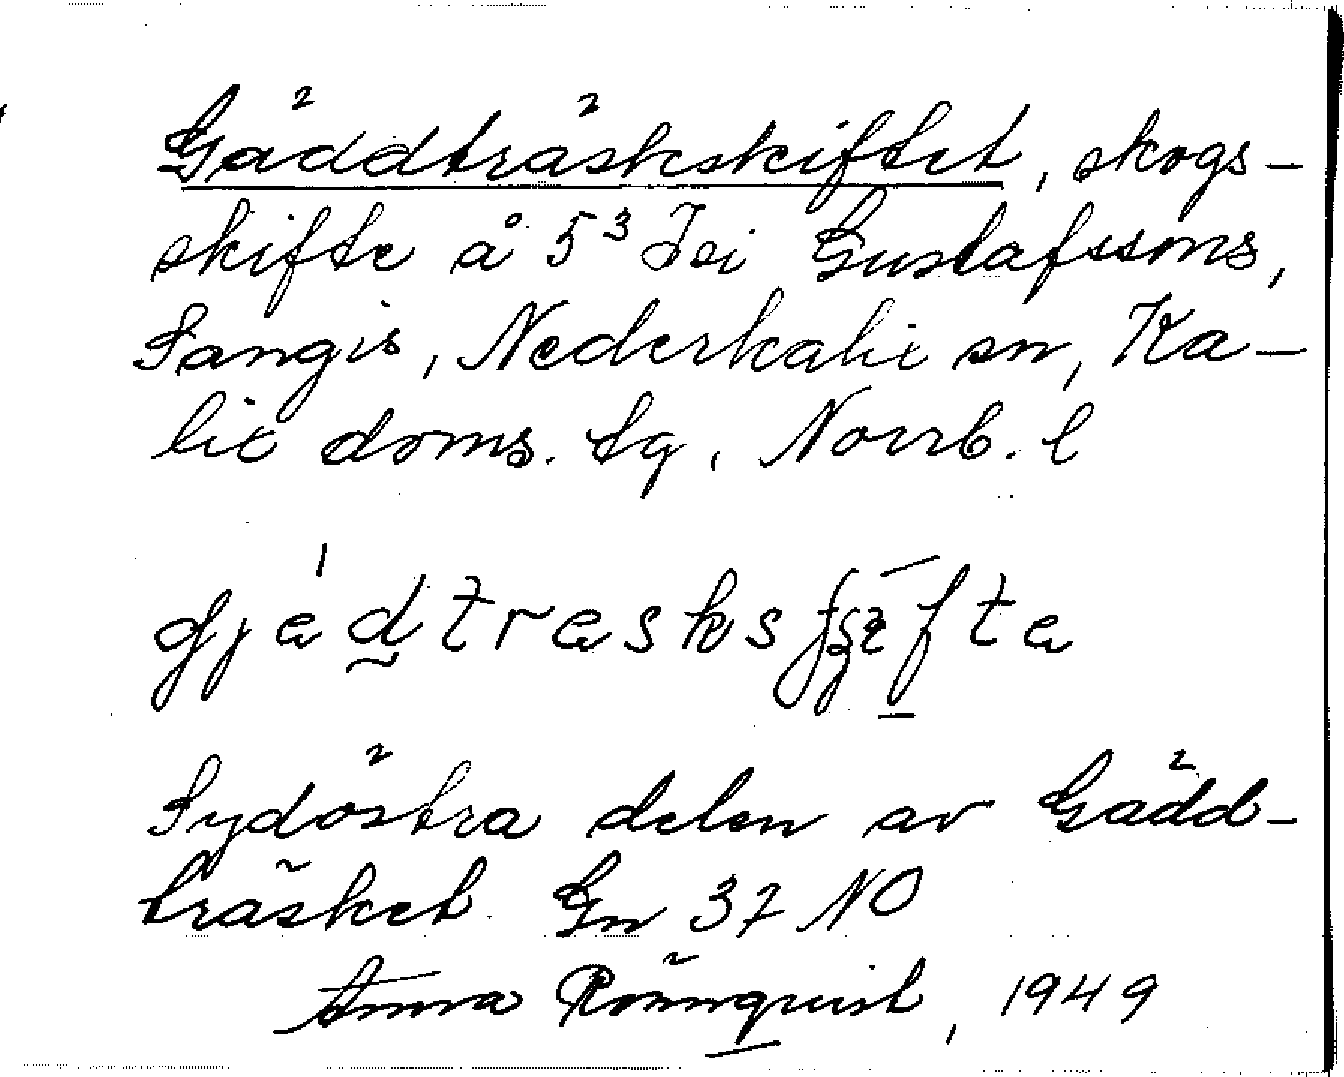 Gäddträskskiftet, skogs-
skifte å 5³ Isi Gustafssons,
Sangis, Nederkalix sn, Ka-
lix doms. tg, Norrb. l
Sydöstra delen av Gädd-
träsket Gn 37 NO
Anna Rönnquist, 1949